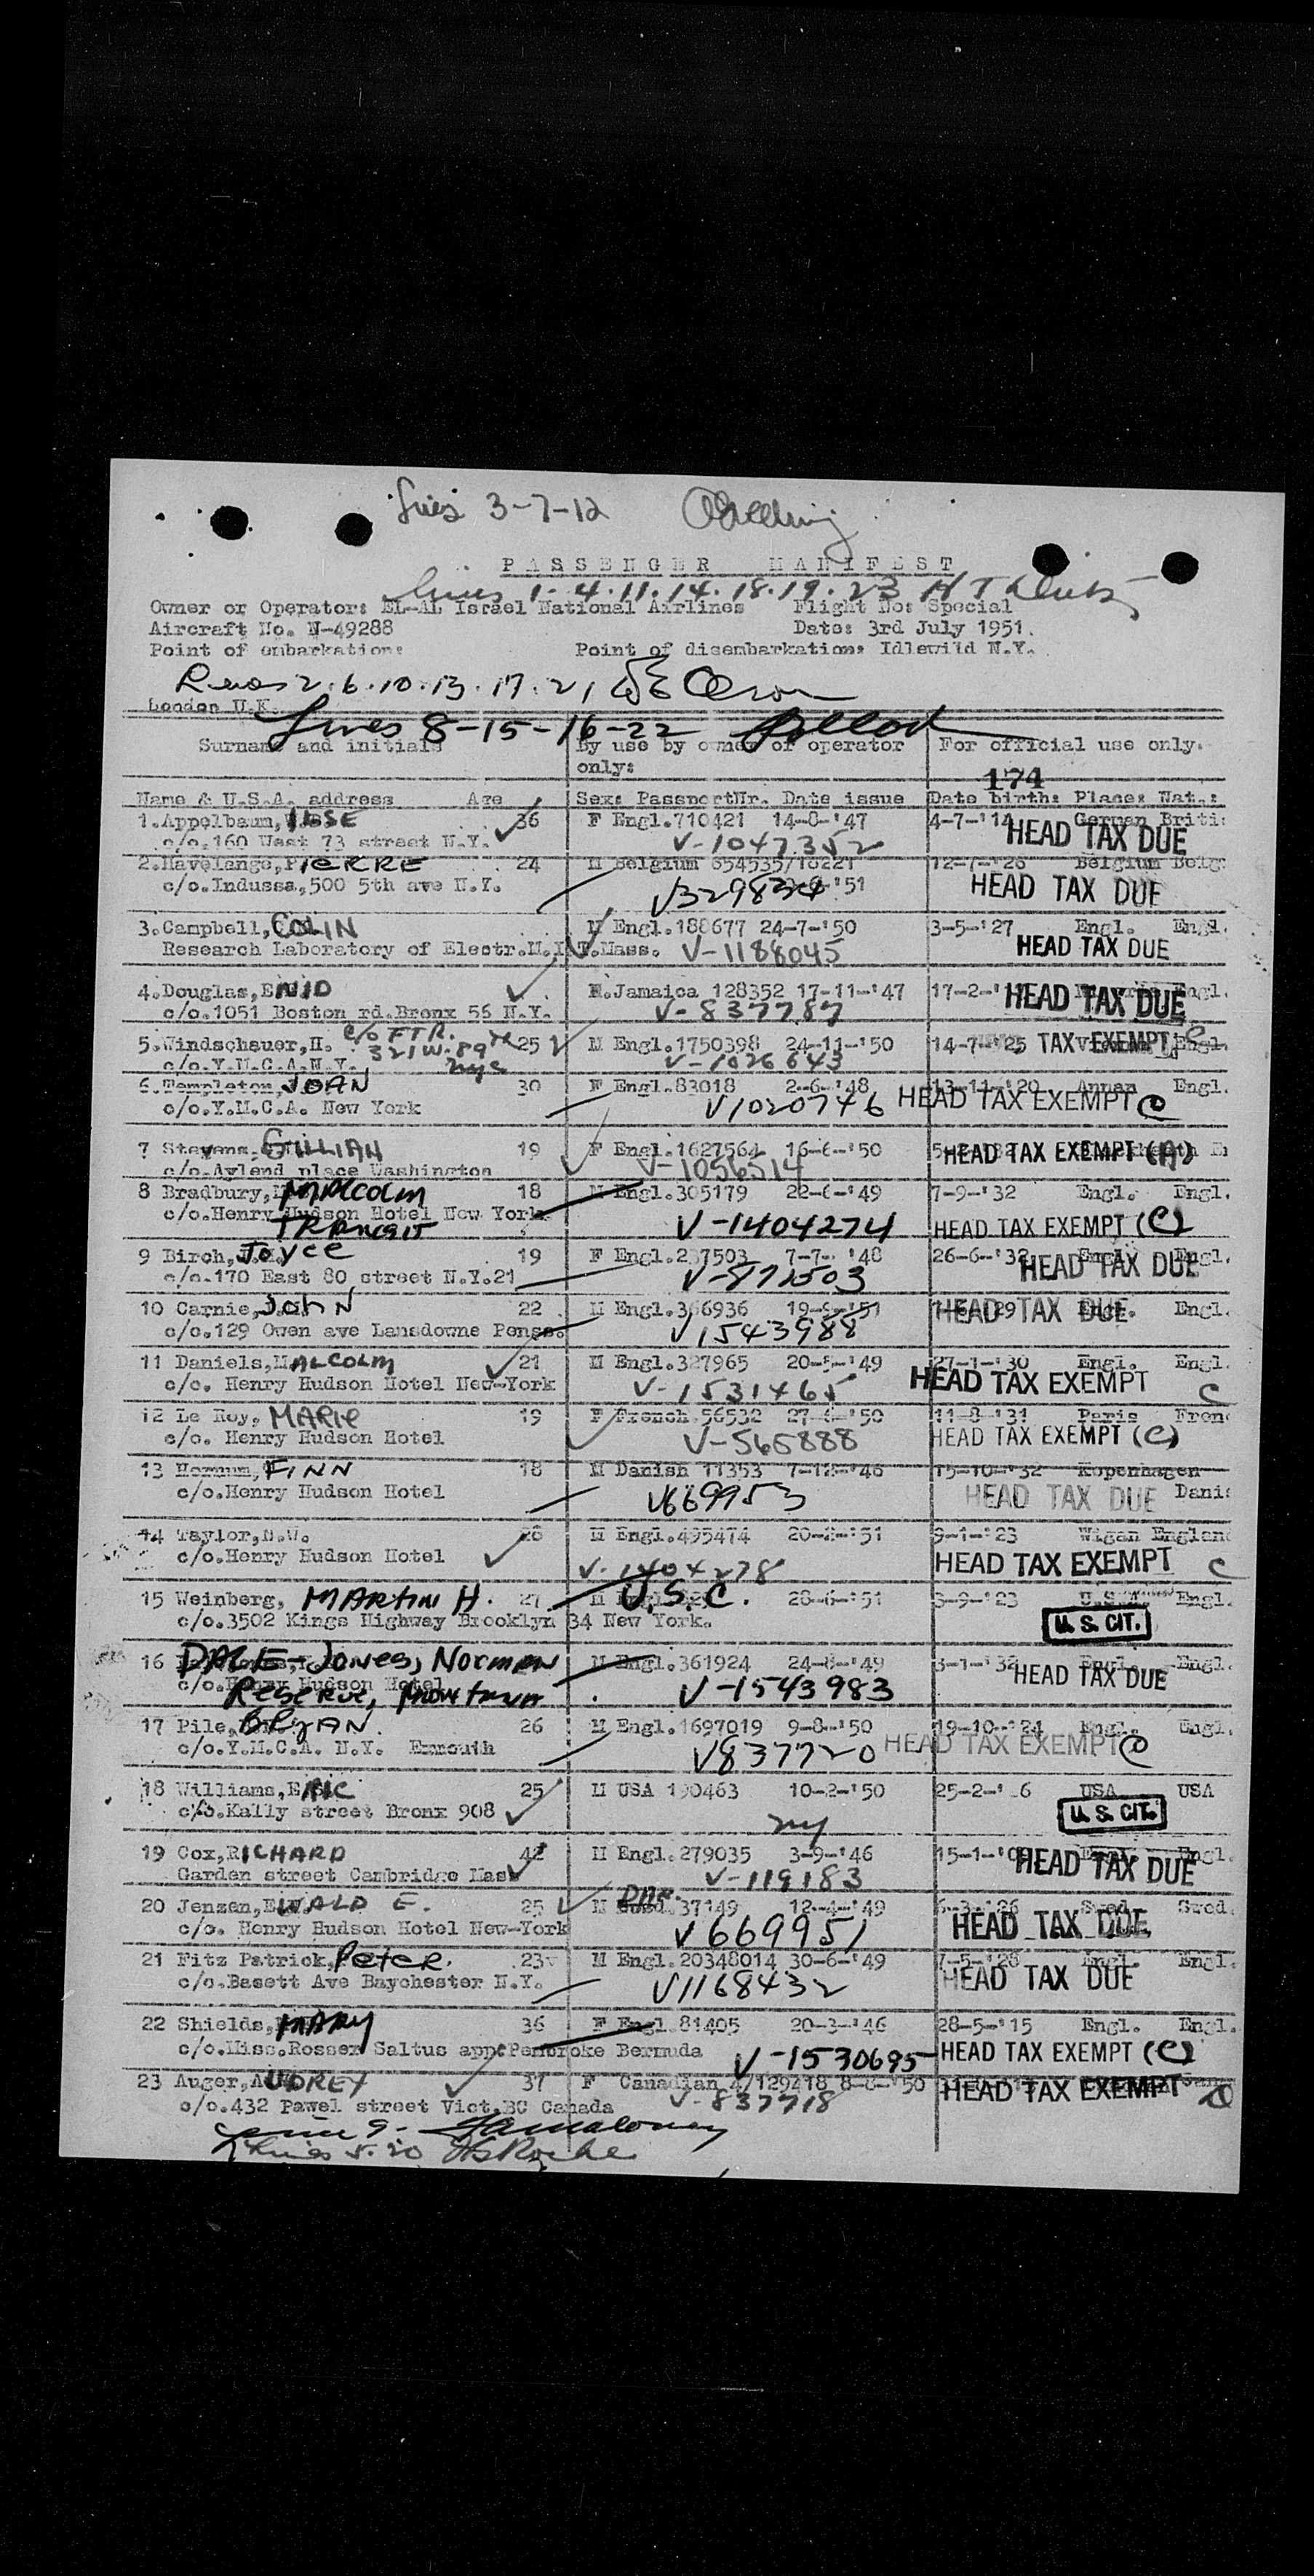 Lines 3-7-12
PASSENGER MANIFEST
Lines 1-4-11-14-18-19-23
Owner or Operator: EL-AL Israel National Airlines Flight No: Special
Aircraft No. N-49288 Date: 3rd July 1951.
Point of embarkation: Point of disembarkation: Idlewild N.Y.
Lines 2-6-10-13-17-21
London U.K.
Lines 8-15-16-22
Surname and initials By use by owner of operator For official use only.
only:
174
Name & U.S.A. address Age Sex: PassportNr. Date issue Date birth: Place: Nat.:
1.Appelbaum, ILSE 36 F Engl.710421 14-8-'47 4-7-'14 German Briti
c/o.160 West 73 street N.Y. V-1047352 HEAD TAX DUE
2.Havelange, PIERRE 24 M Belgium 654535/10221 12-7-'26 Belgium Belg
c/o.Indussa,500 5th ave N.Y. '51 HEAD TAX DUE
3.Campbell, COLIN M Engl.188677 24-7-'50 3-5-'27 Engl. Engl.
Research Laboratory of Electr.M.I.T.Mass. V-1188045 HEAD TAX DUE
4.Douglas, ENID F.Jamaica 128352 17-11-'47 17-2-' Engl.
c/o.1051 Boston rd.Bronx 56 N.Y. V-837787 HEAD TAX DUE
c/o FTR.
5.Windschauer,H. 321 W. 89 St 25 M Engl.1750398 24-11-'50 14-7-'25 TAX EXEMPT C
c/o.Y.M.C.A.N.Y. NYC V-1026643
6.Templeton, JOAN 30 F Engl.83018 2-6-'48 13-11-'20 Annan Engl.
c/o.Y.M.C.A. New York V1020746 HEAD TAX EXEMPT C
7 Stevens, GILLIAN 19 F Engl.1627564 16-6-'50 HEAD TAX EXEMPT (A)
c/o.Aylend place Washington V-1056514
8 Bradbury, MALCOLM 18 M Engl.305179 22-6-'49 7-9-'32 Engl. Engl.
c/o.Henry Hudson Hotel New York
TRANSIT V-1404274 HEAD TAX EXEMPT (C)
9 Birch, JOYCE 19 F Engl.237503 7-7-'48 26-6-'32 Engl. Engl.
c/o.170 East 80 street N.Y.21 HEAD TAX DUE
10 Carnie, JOHN 22 M Engl.366936 19-9-'51 '29 Engl. Engl.
c/o.129 Owen ave Lansdowne Penss. V1543988 HEAD TAX DUE
11 Daniels, MALCOLM 21 M Engl.327965 20-5-'49 27-1-'30 Engl. Engl.
c/c. Henry Hudson Hotel New-York V-1531465 HEAD TAX EXEMPT C
12 Le Roy, MARIE 19 F French 56532 27-6-'50 11-8-'31 Paris Fren
c/o. Henry Hudson Hotel V-565888 HEAD TAX EXEMPT (C)
13 FINN 18 M Danish 11353 7-12-'46 15-10-'32 Kopenhagen
c/o.Henry Hudson Hotel V669953 HEAD TAX DUE Danis
14 Taylor,N.W. 28 M Engl.495474 20-2-'51 9-1-'23 Wigan England
c/o.Henry Hudson Hotel V-1404278 HEAD TAX EXEMPT C
15 Weinberg, MARTIN H. 27 U.S.C. 28-6-'51 3-9-'23 Engl.
c/o.3502 Kings Highway Brooklyn 34 New York. U.S. CIT.
16 DALE-JONES, NORMAN M Engl.361924 24-8-'49 3-1-'32 Engl. Engl.
c/o.Henry Hudson Hotel HEAD TAX DUE
Reserve, Montana V-1543983
17 Pile, BRYAN. 26 M Engl.1697019 9-8-'50 19-10-'24 Engl. Engl.
c/o.Y.M.C.A. N.Y. Exmouth V837720 HEAD TAX EXEMPT C
18 Williams, ERIC 25 M USA 190463 10-2-'50 25-2-' 6 USA USA
c/o.Kally street Bronx 908 NY U.S. CIT.
19 Cox, RICHARD 42 M Engl.279035 3-9-'46 15-1-' Engl.
Garden street Cambridge Mass V-119183 HEAD TAX DUE
20 Jenzen, EWALD E. 25 M DAN. 37149 12-4-'49 6-3-'26 Swed. Swed.
c/o. Henry Hudson Hotel New-York V669951 HEAD TAX DUE
21 Fitz Patrick, PETER. 23 M Engl.20348014 30-6-'49 7-5-'28 Engl. Engl.
c/o.Basett Ave Baychester N.Y. V1168432 HEAD TAX DUE
22 Shields, MARY 36 F Engl.81405 20-3-'46 28-5-'15 Engl. Engl.
c/o.Miss.Rosser Saltus app Pembroke Bermuda V-1530695 HEAD TAX EXEMPT (C)
23 Auger, AUDREY 37 F Canadian 47129418 8-8-'50
c/o.432 Pawel street Vict.BC Canada V-837718 HEAD TAX EXEMPT
Line 9-
Lines 5-20